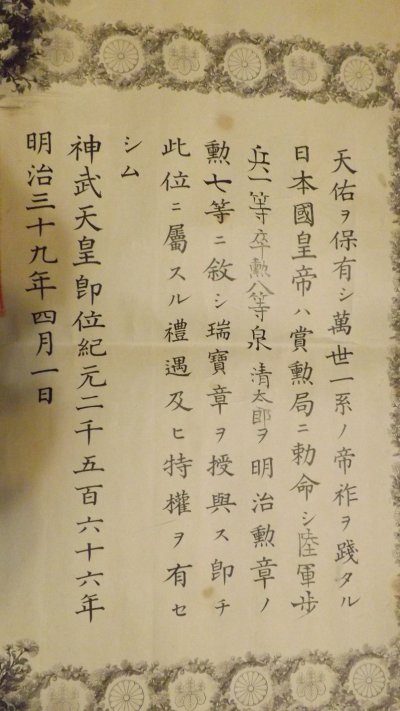 天佑ヲ保有シ萬世一系ノ帝祚ヲ踐タル
日本國皇帝ハ賞勲局ニ勅命シ陸軍歩
兵一等卒勲八等泉清太郎ヲ明治勲章ノ
勲七等ニ敘シ瑞寶章ヲ授與ス即チ
此位ニ屬スル禮遇及ヒ特權ヲ有セ
シム
神武天皇即位紀元二千五百六十六年
明治三十九年四月一日